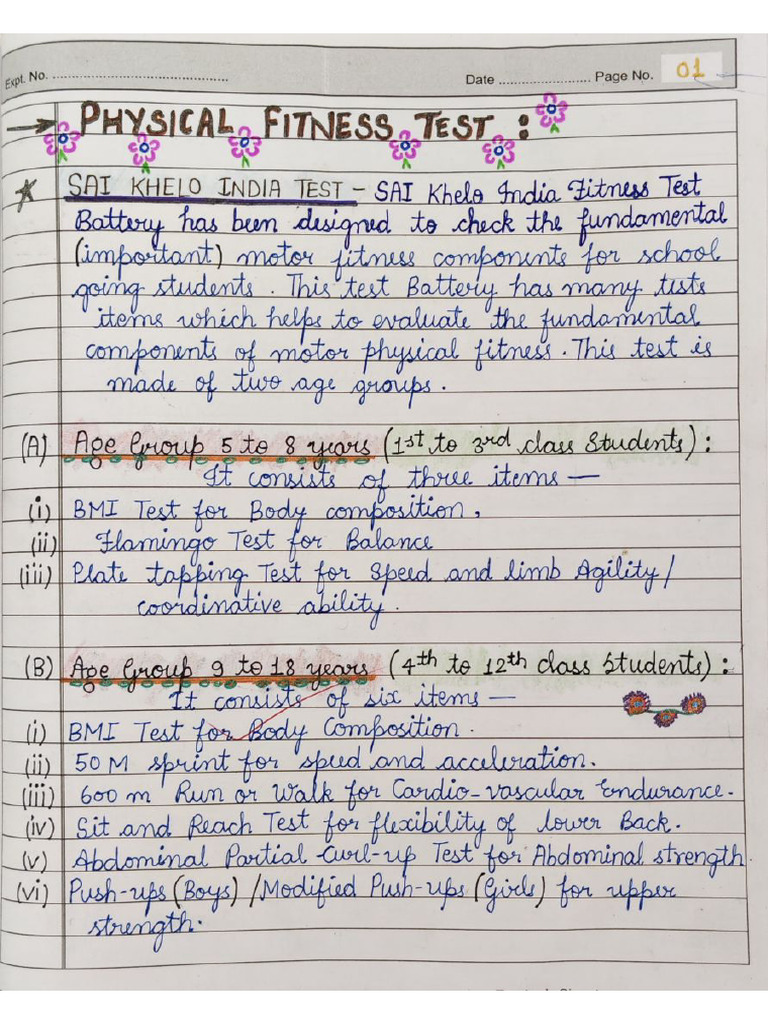 Expt. No. ............................................ Date ....................... Page No. 01
→ PHYSICAL FITNESS TEST :
* SAI KHELO INDIA TEST - SAI Khelo India Fitness Test
Battery has been designed to check the fundamental
(important) motor fitness components for school
going students. This test Battery has many tests
items which helps to evaluate the fundamental
components of motor physical fitness. This test is
made of two age groups.
(A) Age Group 5 to 8 years (1st to 3rd class Students) :
It consists of three items —
(i) BMI Test for Body composition,
(ii) Flamingo Test for Balance
(iii) Plate tapping Test for Speed and limb Agility/
coordinative ability.
(B) Age Group 9 to 18 years (4th to 12th class Students) :
It consists of six items —
(i) BMI Test for Body Composition.
(ii) 50 M sprint for speed and acceleration.
(iii) 600 m Run or Walk for Cardio-vascular Endurance.
(iv) Sit and Reach Test for flexibility of lower Back.
(v) Abdominal Partial Curl-up Test for Abdominal strength
(vi) Push-ups (Boys) / Modified Push-ups (Girls) for upper
strength.